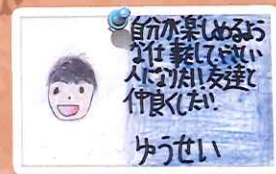 自分が楽しめるよう
な仕事をしていたい
人になりたい!友達と
仲良くしたい。
ゆうせい